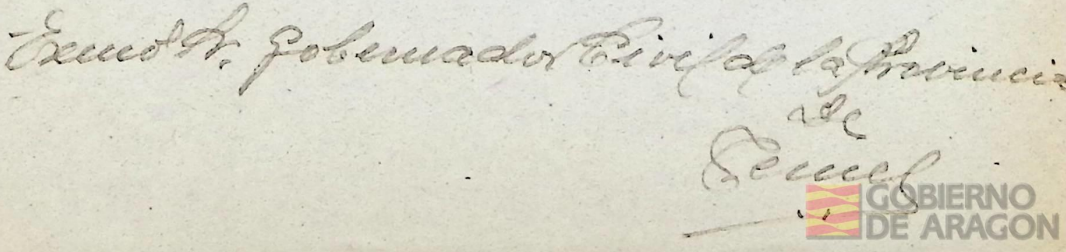 Exmo Sr. Gobernador Civil de la Provincia
de
Teruel
GOBIERNO
DE ARAGON